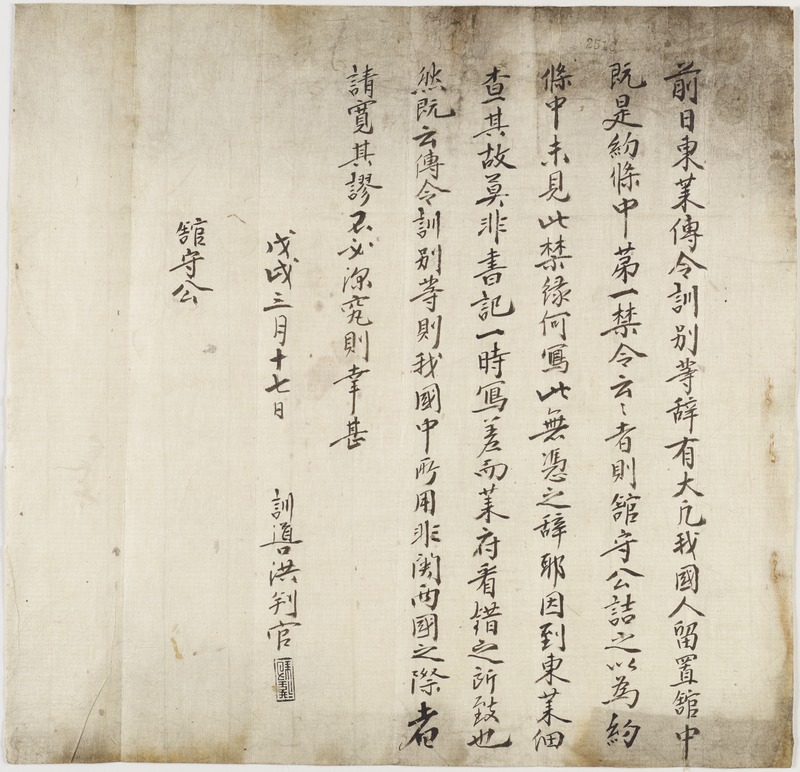 前日東萊傳令訓別等辞有大凡我國人留置舘中
既是約條中苐一禁令云〻者則舘守公詰之以為約
條中未見此禁緣何寫此無憑之辞耶因到東萊細
查其故莫非書記一時寫差而萊府看錯之所致也
然既云傳令訓別等則我國中所用非関两國之際者
請寬其謬不必深究則幸甚
戊戌三月十七日 訓導洪判官
舘守公